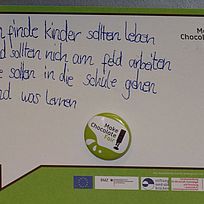 finde kinder sollten leben
sollten nich am feld arbeiten
sollen in die schule gehen
nd was lernen
Make
Chocolate
Fair!